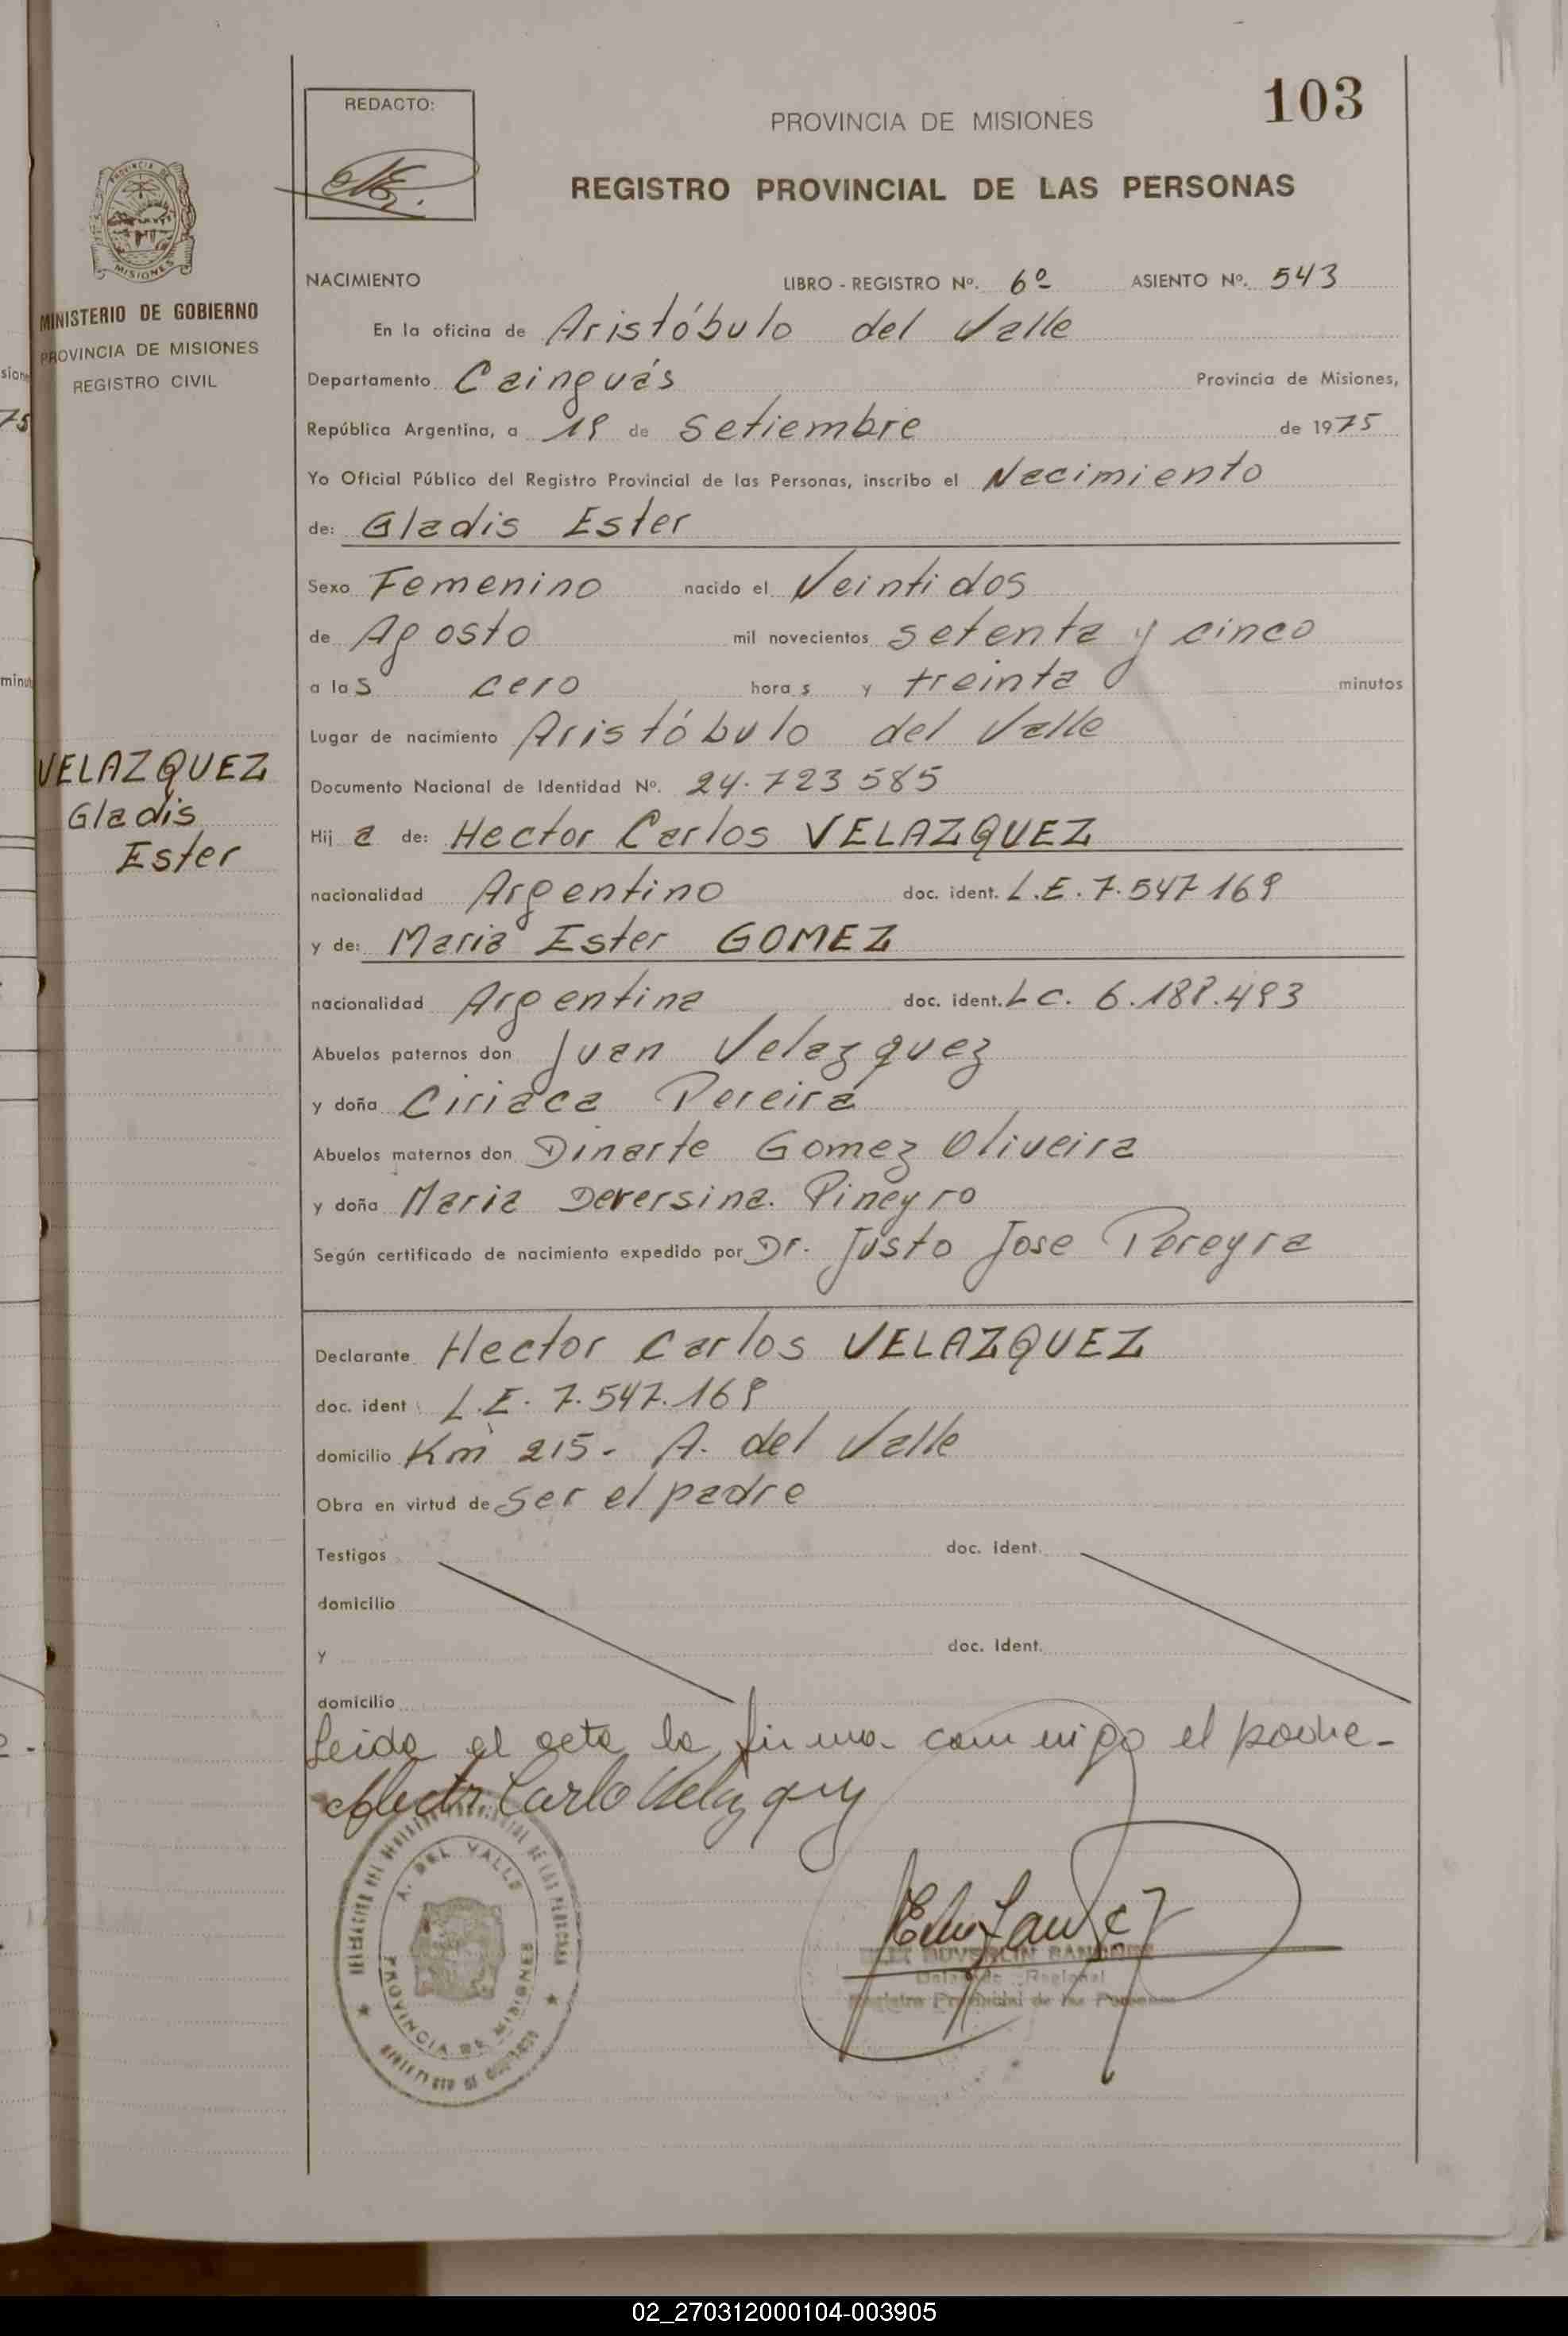 103
REDACTO:
PROVINCIA DE MISIONES
REGISTRO PROVINCIAL DE LAS PERSONAS
PROVINCIA DE
MISIONES
MINISTERIO DE GOBIERNO
PROVINCIA DE MISIONES
REGISTRO CIVIL
NACIMIENTO LIBRO - REGISTRO Nº. 6º ASIENTO Nº. 543
En la oficina de Aristóbulo del Valle
Departamento Cainguás Provincia de Misiones,
República Argentina, a 19 de Setiembre de 1975
Yo Oficial Público del Registro Provincial de las Personas, inscribo el Nacimiento
de: Gladis Ester
Sexo Femenino nacido el Veintidos
de Agosto mil novecientos setenta y cinco
a las cero horas y treinta minutos
Lugar de nacimiento Aristóbulo del Valle
VELAZQUEZ
Gladis
Ester
Documento Nacional de Identidad Nº. 24.723585
Hija de: Hector Carlos VELAZQUEZ
nacionalidad Argentino doc. ident. L.E. 7.547169
y de: Maria Ester GOMEZ
nacionalidad Argentina doc. ident. LC. 6.188.493
Abuelos paternos don Juan Velazquez
y doña Ciriaca Pereira
Abuelos maternos don Dinarte Gomez Oliveira
y doña Maria Deversina. Pineyro
Según certificado de nacimiento expedido por Dr. Justo Jose Pereyra
Declarante Hector Carlos VELAZQUEZ
doc. ident L.E. 7.547.169
domicilio Km 215- A. del Valle
Obra en virtud de ser el padre
Testigos doc. ident.
domicilio
y doc. ident.
domicilio
Leida el acta la firma conmigo el padre-
Hector Carlo Velazquez
A. DEL VALLE
PROVINCIA DE MISIONES
Registro Provincial de las Personas
02_270312000104-003905